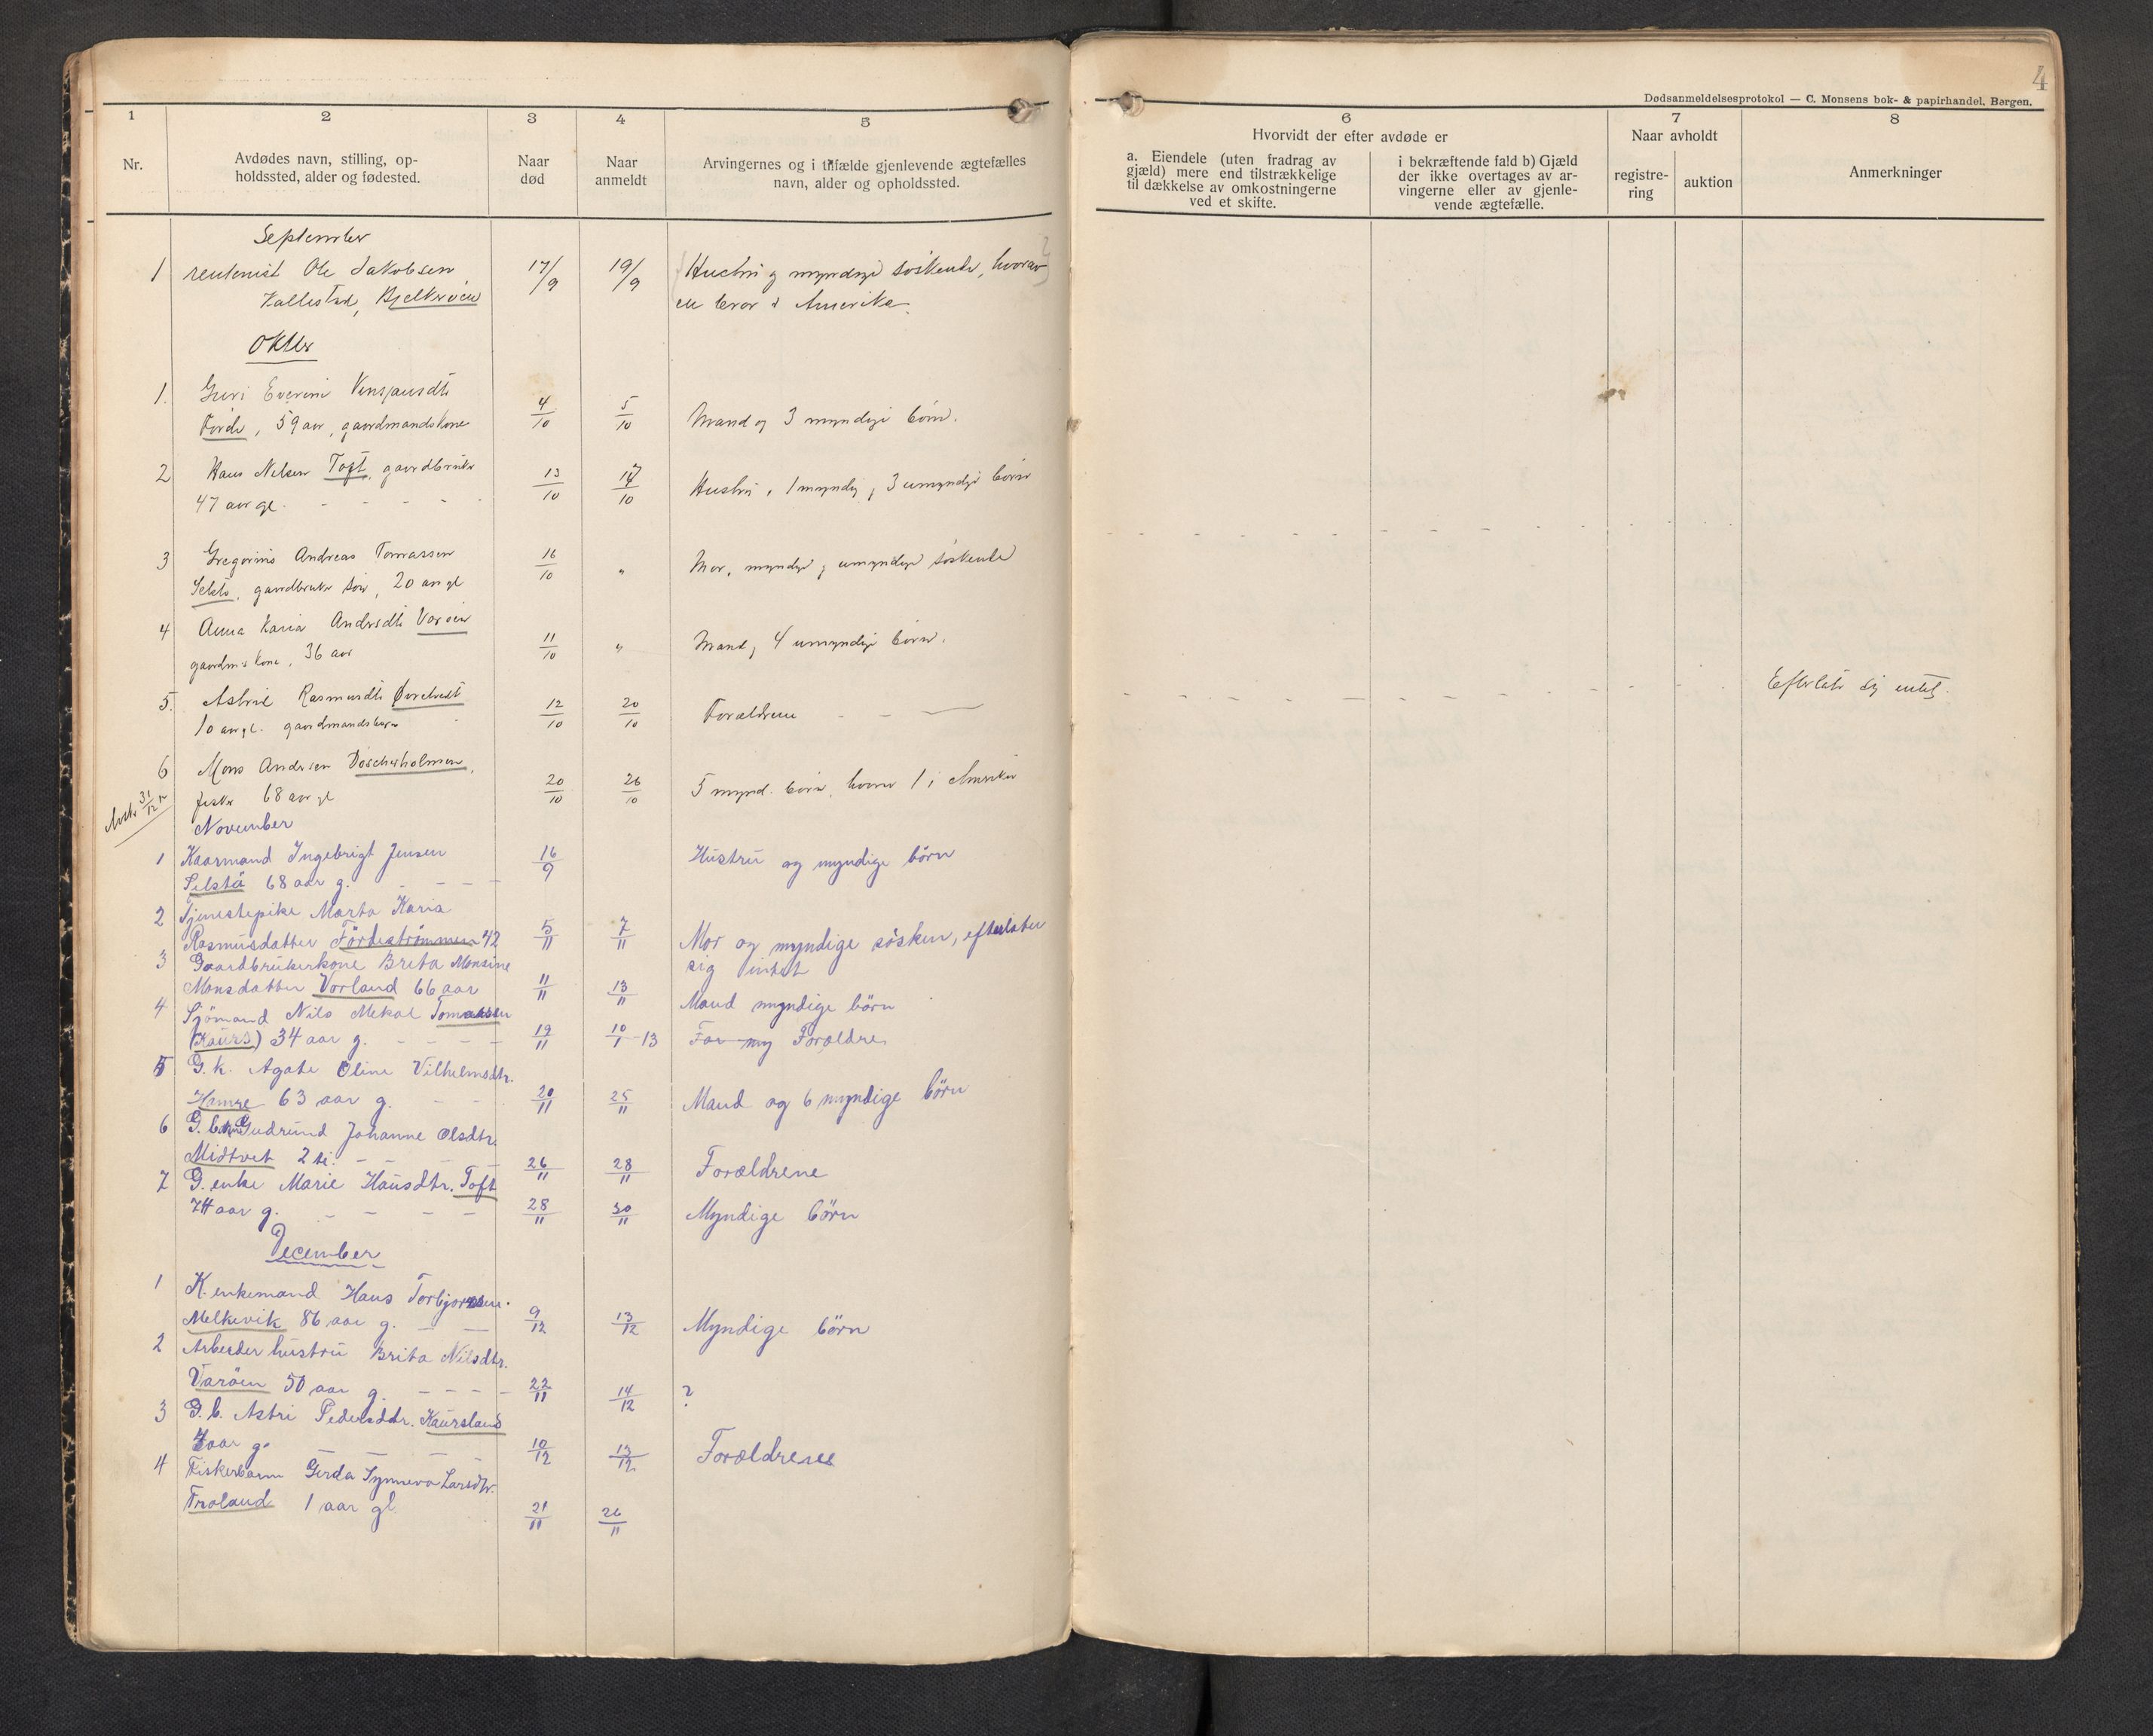 4
Dødsanmeldelsesprotokol — C. Monsens bok- & papirhandel, Bergen.
1
2
3
4
5
6
7
8
Nr.
Avdødes navn, stilling, op-
holdssted, alder og fødested.
Naar
død
Naar
anmeldt
Arvingernes og i tilfælde gjenlevende ægtefælles
navn, alder og opholdssted.
Hvorvidt der efter avdøde er
a. Eiendele (uten fradrag av
gjæld) mere end tilstrækkelige
til dækkelse av omkostningerne
ved et skifte.
i bekræftende fald b) Gjæld
der ikke overtages av ar-
vingerne eller av gjenle-
vende ægtefælle.
Naar avholdt
registre-
ring
auktion
Anmerkninger
September
1 rentenist Ole Jakobsen 17/9 19/9 Hustru og myndige söskende, hvorav
Kallestad, Bjelkeröen en bror i Amerika.
Oktbr
1. Guri Everine
Förde, 59 aar, gaardmandskone 4/10 5/10 Mand og 3 myndige börn.
2 Hans Nelsen Toft, gaardbruker 13/10 17/10 Hustru, 1 myndig, 3 umyndige börn
47 aar gl. - - - -
3 Gregorius Andreas Tomassen 16/10 " Mor, myndige, umyndige söskende
gaardbruker sön, 20 aar gl
4 Anna Karia Andrsdtr Varöen 11/10 " Mand, 4 umyndige börn.
gaardm's kone, 36 aar
5. Astrid Rasmusdtr Øvretvedt 12/10 20/10 Forældrene - - Efterlate sig intet.
10 aar gl. gaardmandsbarn
6 Mons Andersen Döscherholmen,
fisker 68 aar gl 20/10 26/10 5 mynd. börn, hvorav 1 i Amerika
31/12
November
1 Kaarmand Ingebrigt Jensen 16/9 Hustru og myndige börn
Selstö 68 aar g. - - - -
2 Tjenestepike Marta Karia
Rasmusdatter Fördeströmmen 42 5/11 7/11 Mor og myndige sösken, efterlater
sig intet
3 Gaardbrukerkone Brita Monsine
Monsdatter Vorland 66 aar 11/11 13/11 Mand myndige börn
4 Sjömand Nils Mekal Tomassen
(Kaurs) 34 aar g. - - - - 19/11 10/1-13 Far my Forældre
5 G.k. Agate Oline Vilhelmsdtr.
Hamre 63 aar g. - - 20/11 25/11 Mand og 6 myndige börn
6 G. Gudrund Johanne Olsdtr.
Midtvet 2 ti. - - 26/11 28/11 Forældrene
7 G. enke Marie Hausdtr. Toft
74 aar g. - - - - 28/11 30/11 Myndige börn
December
1 K. enkemand Hans Torbjornsen.
Melkevik 86 aar g. - - 9/12 13/12 Myndige börn
2 Arbeider hustru Brita Nilsdtr.
Varöen 50 aar g. - - - - 22/11 14/12 ?
3 G.b. Astri Pedersdtr. Kaursland
7 aar g. - - - - 10/12 13/12 Forældrene
4 Fiskerbarn Gerda Synneva Larsdtr.
Troland 1 aar gl 21/11 26/11